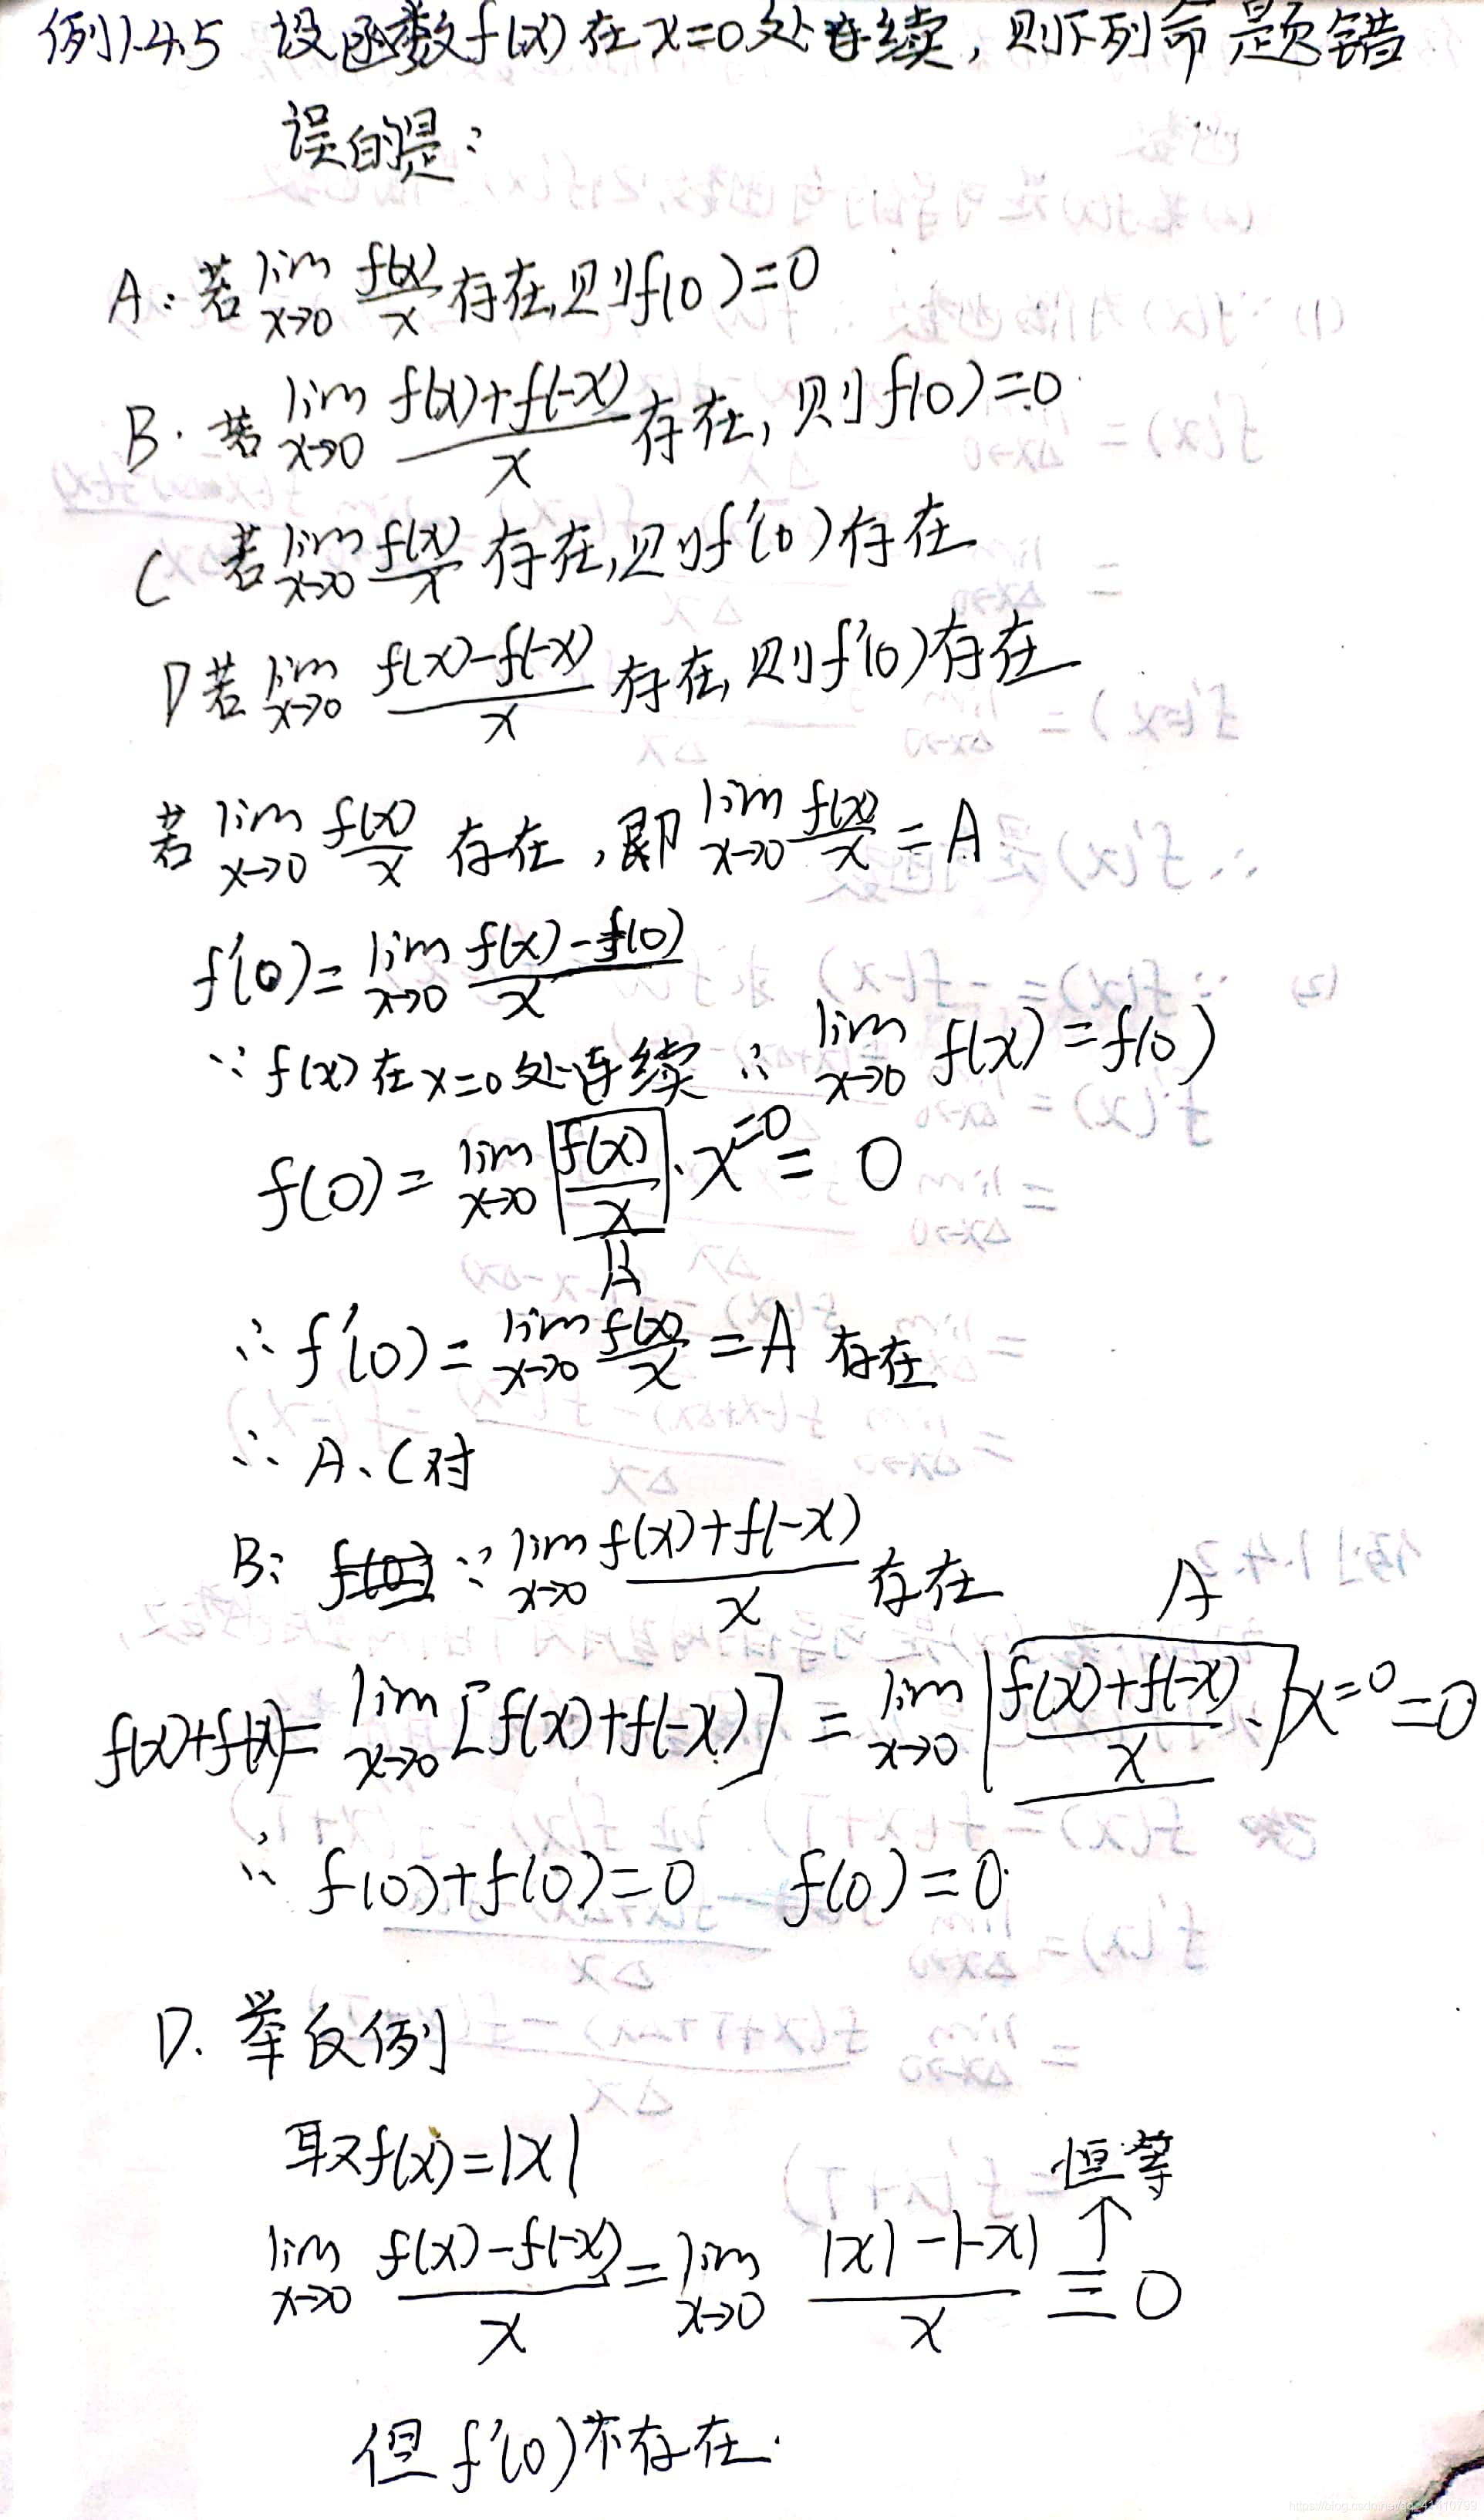 例1.4.5 设函数f(x)在x=0处连续，则下列命题错
误的是：
A：若lim x→0 f(x)/x 存在,则f(0)=0
B. 若lim x→0 (f(x)+f(-x))/x 存在，则f(0)=0
C 若lim x→0 f(x)/x 存在,则f'(0)存在
D若lim x→0 (f(x)-f(-x))/x 存在,则f'(0)存在
若 lim x→0 f(x)/x 存在,即 lim x→0 f(x)/x = A
f'(0)= lim x→0 (f(x)-f(0))/x
∵f(x)在x=0处连续 ∴ lim x→0 f(x)=f(0)
f(0)= lim x→0 [f(x)/x]·x =0 = 0
A
∴f'(0)= lim x→0 f(x)/x = A 存在
∴ A、C对
B: ∵ lim x→0 (f(x)+f(-x))/x 存在
A
f(x)+f(x)= lim x→0 [f(x)+f(-x)] = lim x→0 [(f(x)+f(-x))/x ·]x =0 =0
∴ f(0)+f(0)=0 f(0)=0
D. 举反例
取f(x)=|x|
恒等
↑
lim x→0 (f(x)-f(-x))/x = lim x→0 (|x|-|-x|)/x ≡ 0
但 f'(0)不存在.